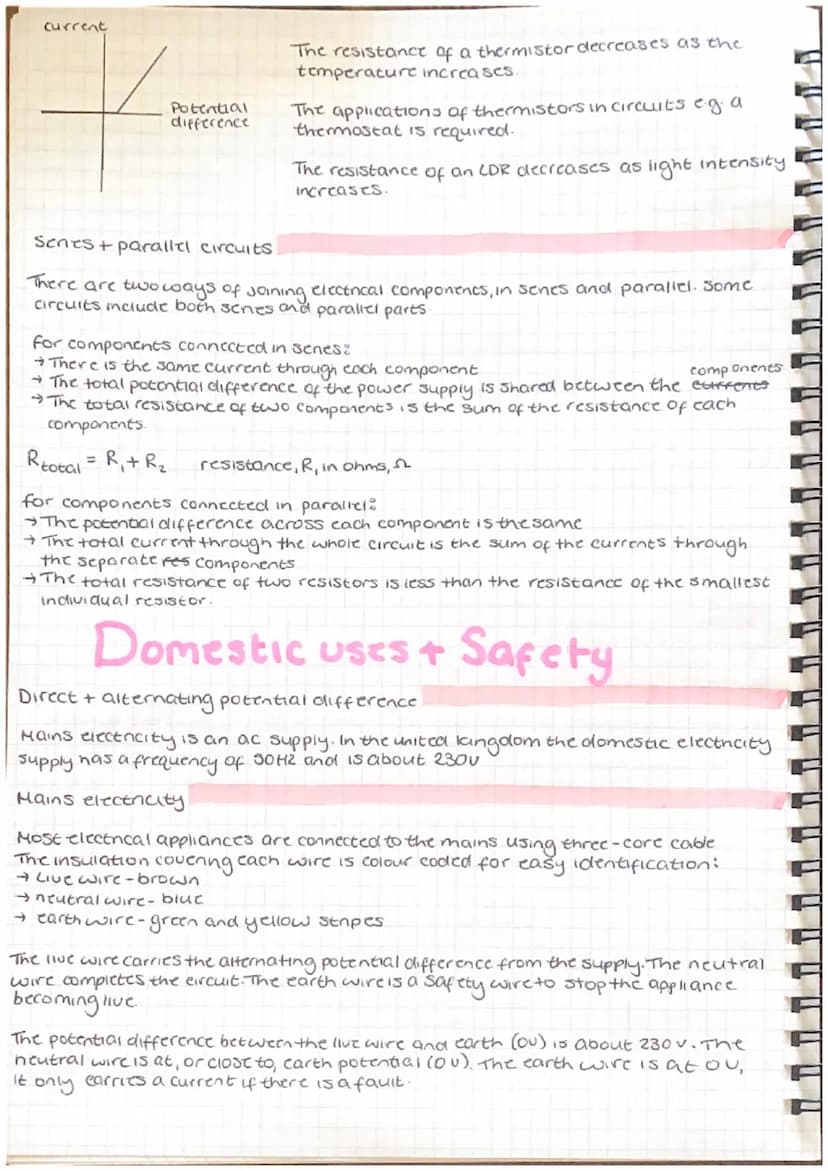 current
Potential
difference
The resistance of a thermistor decreases as the
temperature increases.
The applications of thermistors in circuits e.g. a
thermostat is required.
The resistance of an LDR decreases as light intensity
increases.
Series + parallel circuits
There are two ways of joining electrical components, in series and parallel. Some
circuits include both series and parallel parts.
For components connected in series:
→ There is the same current through each component
components
→ The total potential difference of the power supply is shared between the currents
→ The total resistance of two components is the sum of the resistance of each
components.
Rtotal = R1 + R2 resistance, R, in ohms, Ω
for components connected in parallel:
→ The potential difference across each component is the same
→ The total current through the whole circuit is the sum of the currents through
the separate res components
→ The total resistance of two resistors is less than the resistance of the smallest
individual resistor.
Domestic uses + Safety
Direct + alternating potential difference
Mains electricity is an ac supply. In the united kingdom the domestic electricity
supply has a frequency of 50Hz and is about 230V
Mains electricity
Most electrical appliances are connected to the mains using three-core cable
The insulation covering each wire is colour coded for easy identification:
→ Live wire - brown
→ neutral wire - blue
→ earth wire - green and yellow stripes
The live wire carries the alternating potential difference from the supply. The neutral
wire completes the circuit. The earth wire is a safety wire to stop the appliance
becoming live.
The potential difference between the live wire and earth (0V) is about 230V. The
neutral wire is at, or close to, earth potential (0V). The earth wire is at 0V,
it only carries a current if there is a fault.